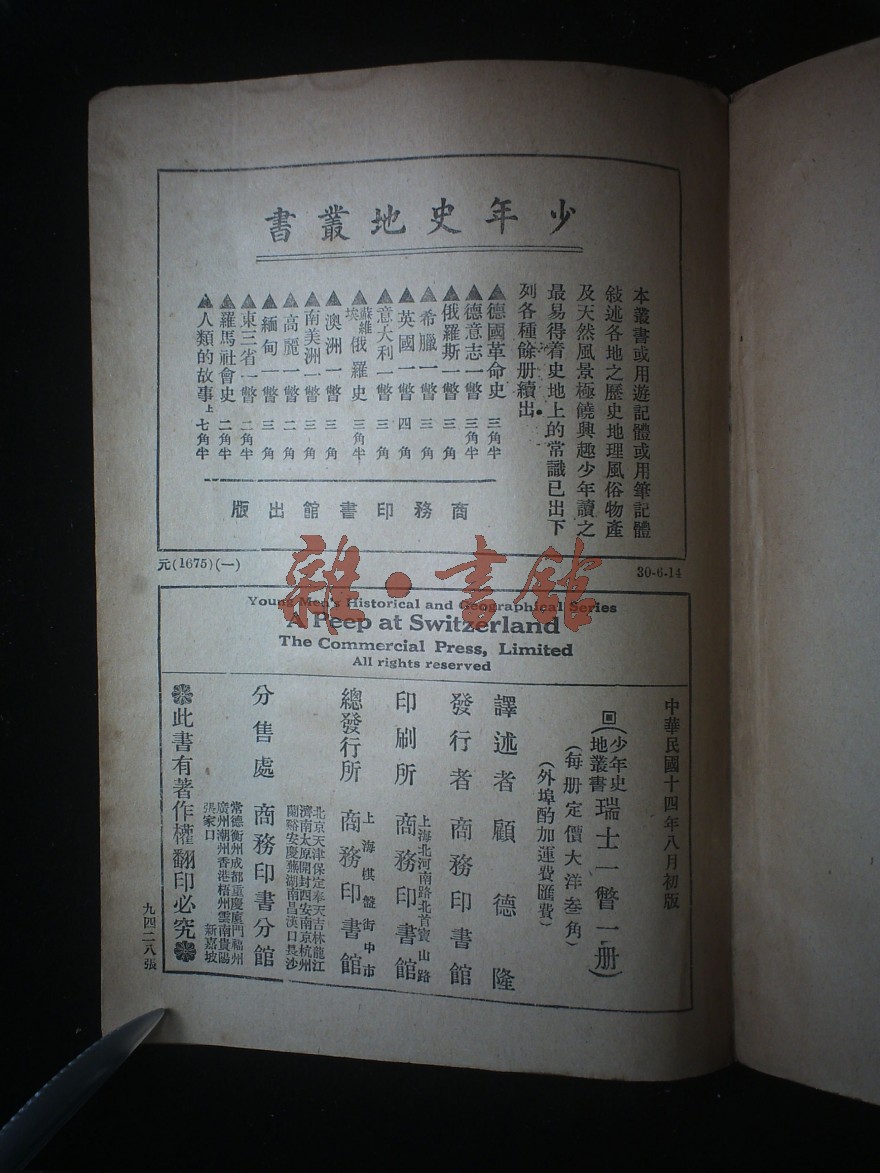 少年史地叢書
本叢書或用遊記體或用筆記體
敍述各地之歷史地理風俗物產
及天然風景極饒興趣少年讀之
最易得着史地上的常識已出下
列各種餘册續出
▲德國革命史 三角半
▲德意志一瞥 三角半
▲俄羅斯一瞥 三角
▲希臘一瞥 三角
▲英國一瞥 四角
▲意大利一瞥 三角
▲蘇維埃俄羅史 三角半
▲澳洲一瞥 三角
▲南美洲一瞥 三角
▲高麗一瞥 二角
▲緬甸一瞥 三角
▲東三省一瞥 二角半
▲羅馬社會史 二角半
▲人類的故事上 七角半
商務印書館出版
元(1675)(一)
30-6-14
雜·書館
Young Men's Historical and Geographical Series
A Peep at Switzerland
The Commercial Press, Limited
All rights reserved
中華民國十四年八月初版
回(少年史地叢書瑞士一瞥一册)
(每册定價大洋叁角)
(外埠酌加運費匯費)
譯述者 顧德隆
發行者 商務印書館
上海北河南路北首寶山路
印刷所 商務印書館
上海棋盤街中市
總發行所 商務印書館
北京天津保定奉天吉林龍江
濟南太原開封西安南京杭州
蘭谿安慶蕪湖南昌漢口長沙
分售處 商務印書分館
常德衡州成都重慶廈門福州
廣州潮州香港梧州雲南貴陽
張家口 新嘉坡
此書有著作權翻印必究
九四二八張